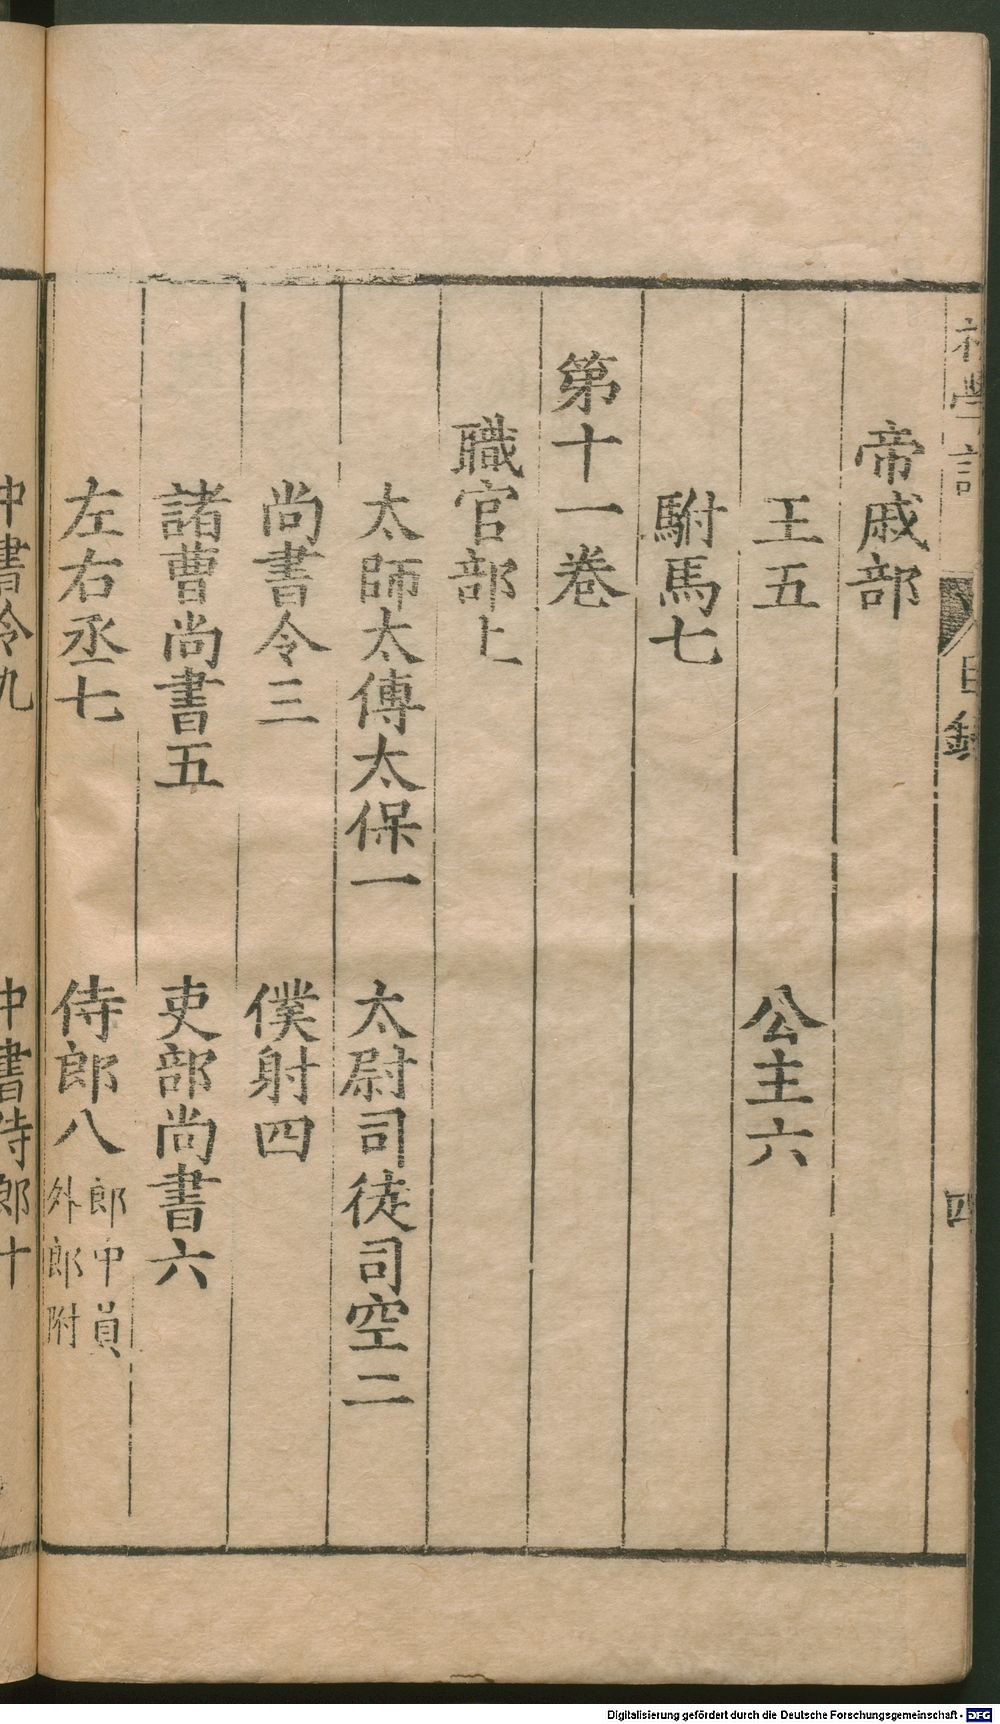 初學記 目錄 四
帝戚部
王五 公主六
駙馬七
第十一卷
職官部上
太師太傅太保一 太尉司徒司空二
尚書令三 僕射四
諸曹尚書五 吏部尚書六
左右丞七 侍郎八 郎中員外郎附
中書令九 中書侍郎十
Digitalisierung gefördert durch die Deutsche Forschungsgemeinschaft - DFG